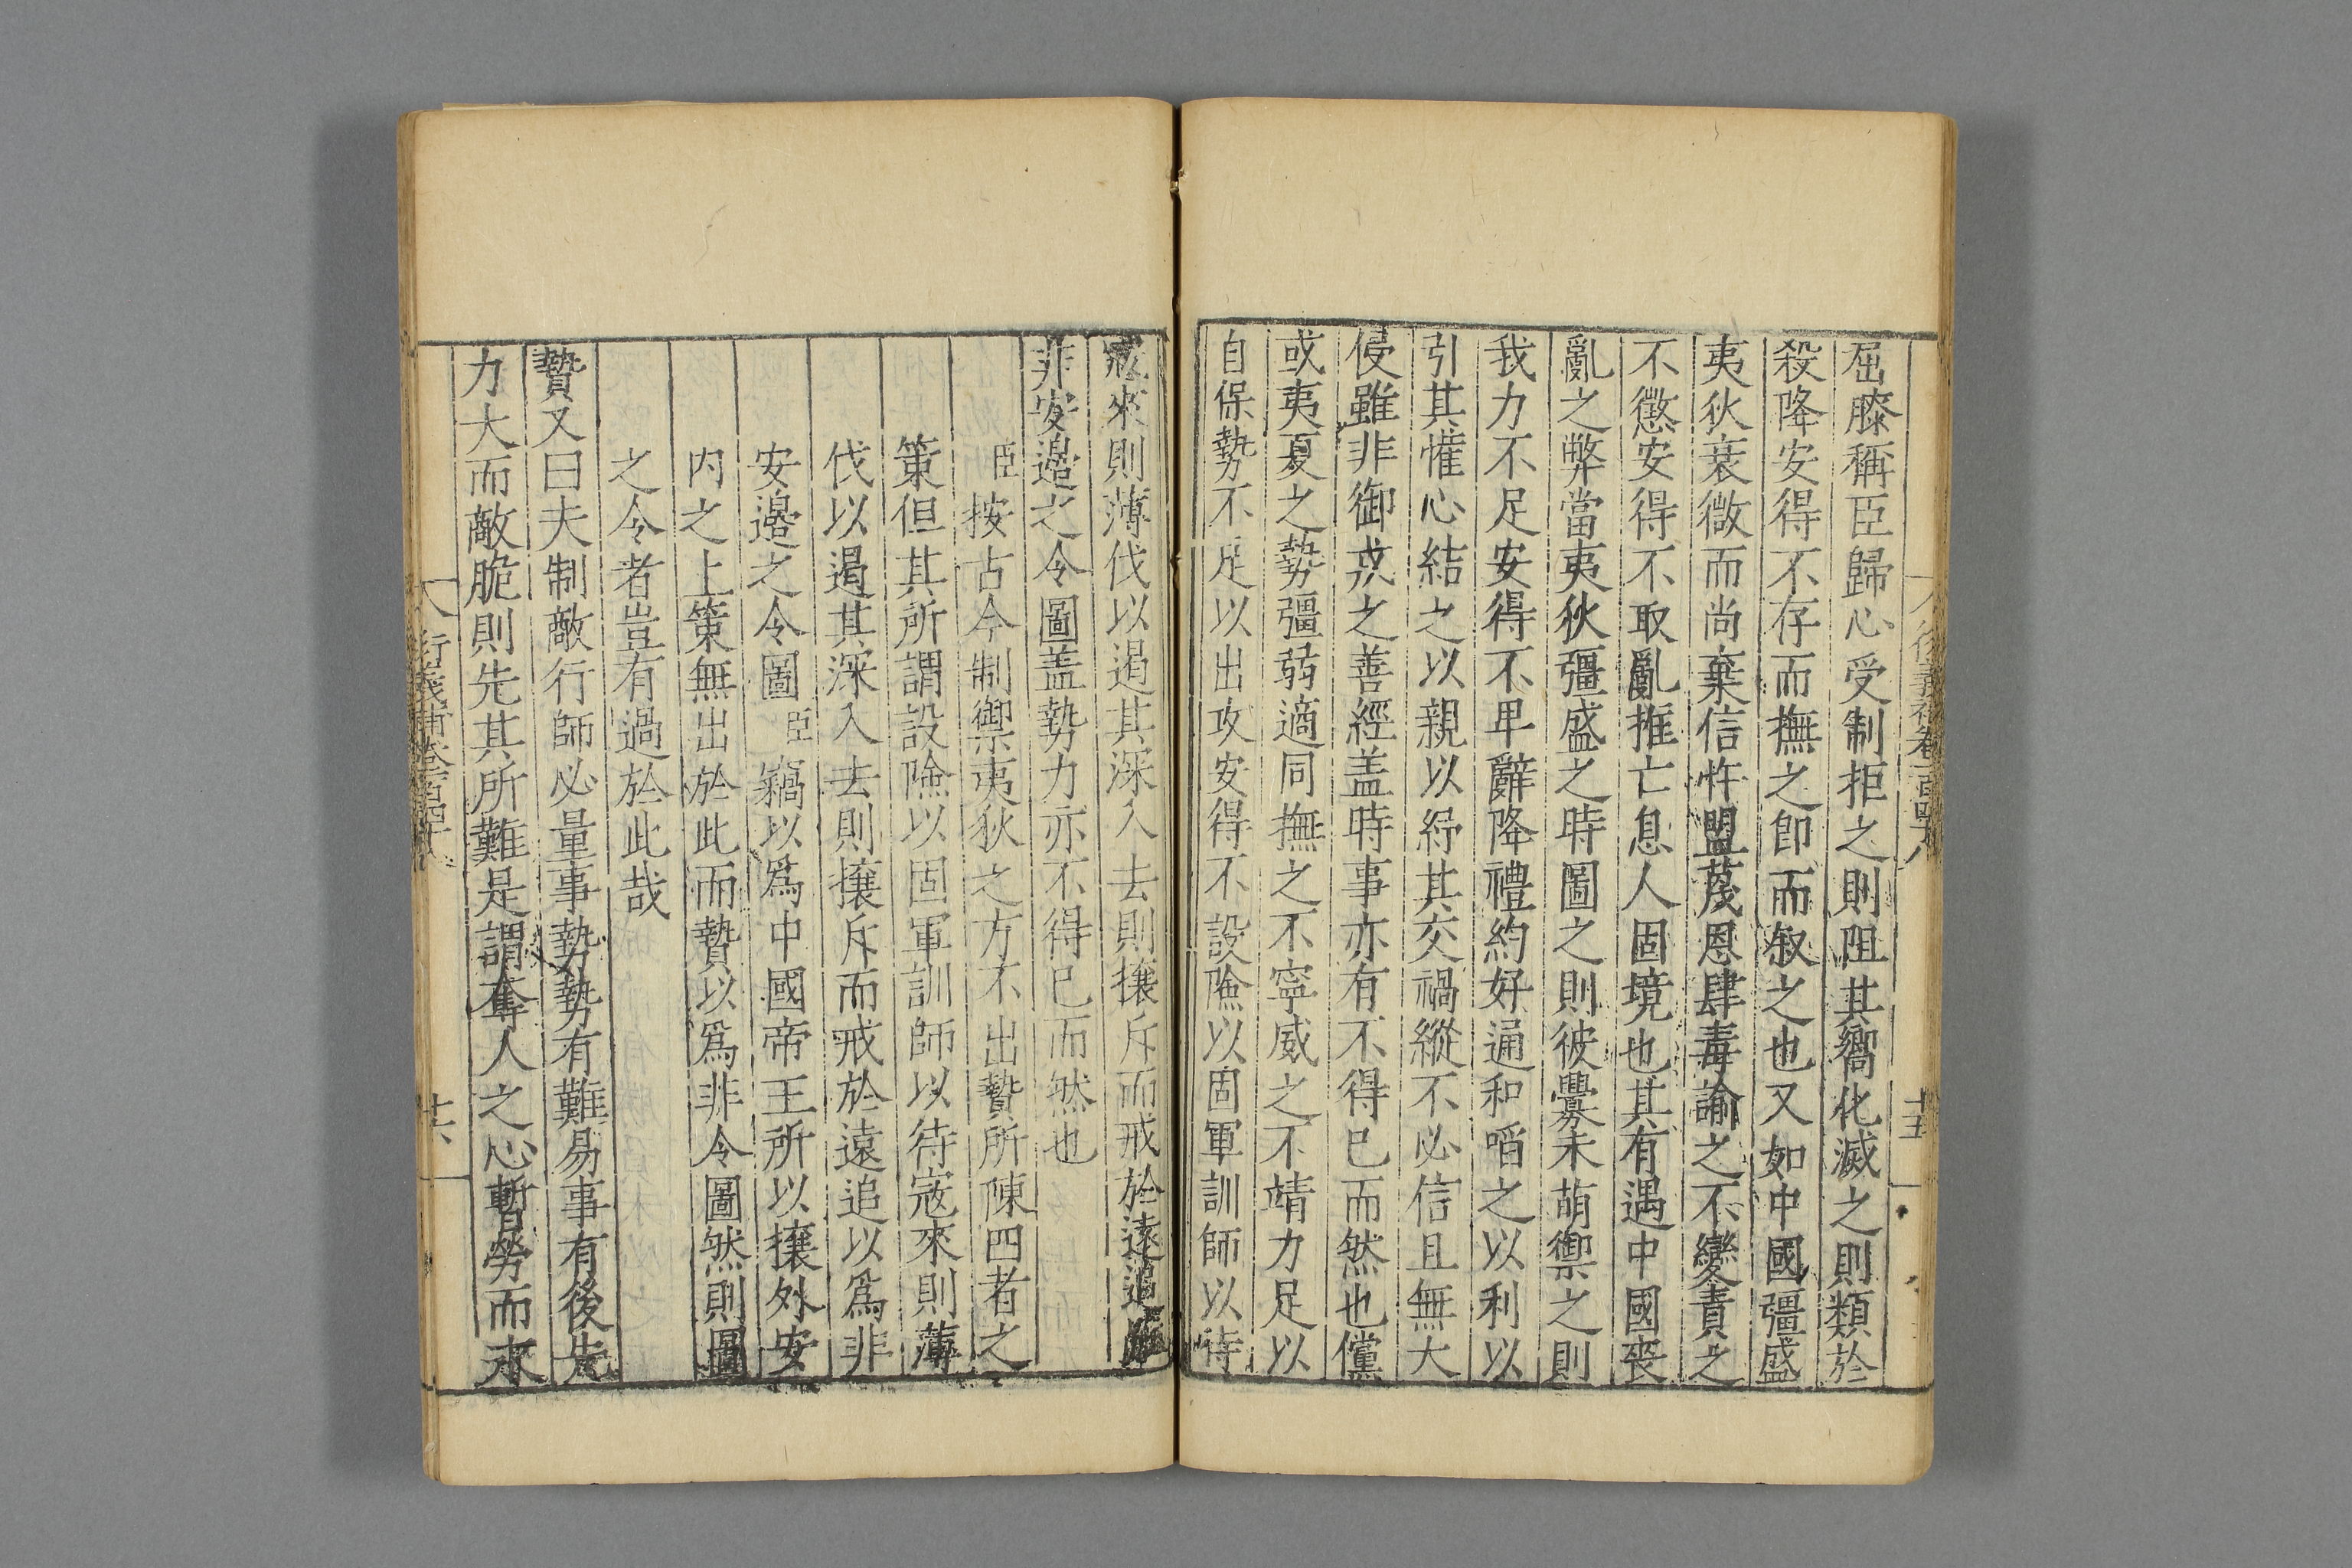 屈膝稱臣歸心受制拒之則阻其嚮化滅之則類於
殺降安得不存而撫之卽而叙之也又如中國彊盛
夷狄衰微而尚棄信忤盟蔑恩肆毒諭之不變責之
不懲安得不取亂推亡息人固境也其有遇中國喪
亂之弊當夷狄彊盛之時圖之則彼釁未萌禦之則
我力不足安得不卑辭降禮約好通和啗之以利以
引其懽心結之以親以紓其交禍縱不必信且無大
侵雖非御戎之善經盖時事亦有不得已而然也儻
或夷夏之勢彊弱適同撫之不寧威之不靖力足以
自保勢不足以出攻安得不設險以固軍訓師以待
寇來則薄伐以遏其深入去則攘斥而戒於遠追
非安邊之令圖盖勢力亦不得已而然也
臣按古今制禦夷狄之方不出贄所陳四者之
策但其所謂設險以固軍訓師以待寇來則薄
伐以遏其深入去則攘斥而戒於遠追以爲非
安邊之令圖臣竊以爲中國帝王所以攘外安
内之上策無出於此而贄以爲非令圖然則圖
之令者豈有過於此哉
贄又曰夫制敵行師必量事勢勢有難易事有後先
力大而敵脆則先其所難是謂奪人之心暫勞而永
衍義補卷一百四十八
十五
衍義補卷一百四十八
十六